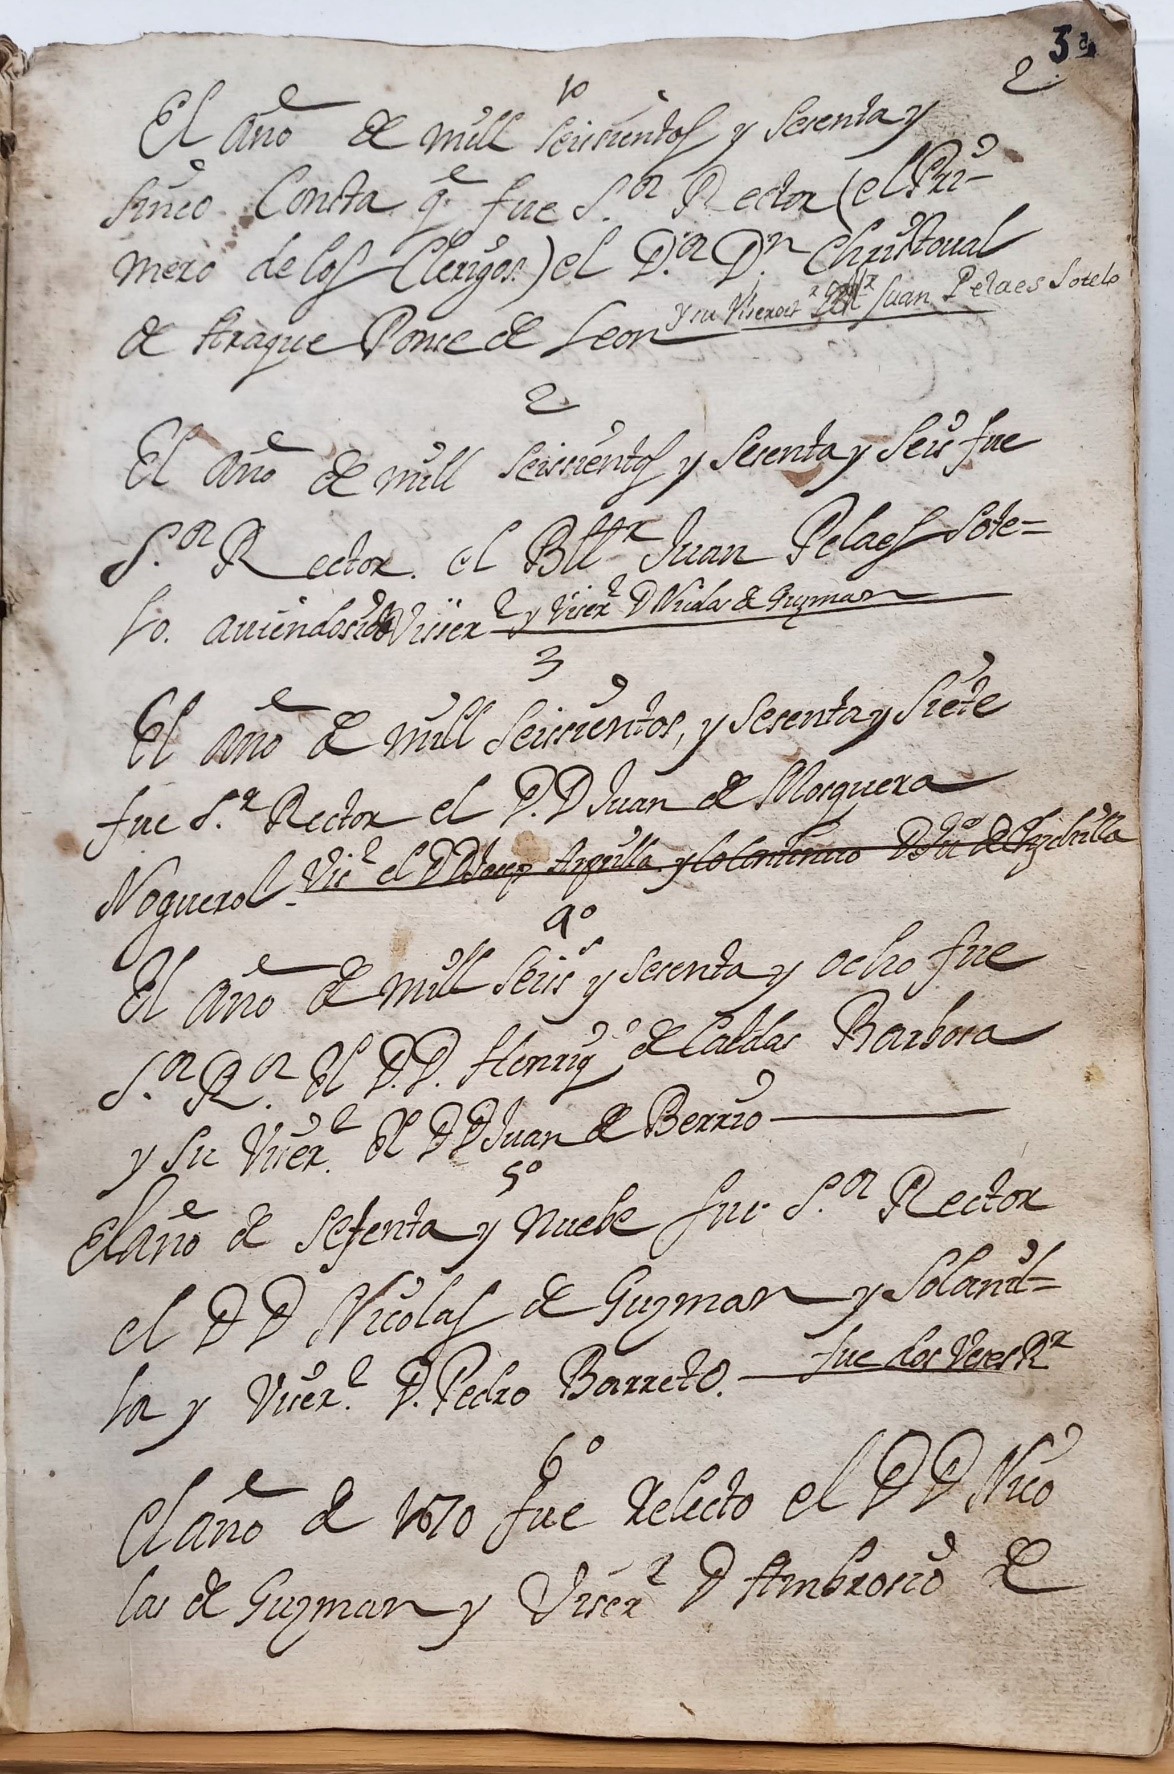 3
2
1º
El año de mill seiscientos y sesenta y
sinco Consta q.e fue S.or Rector (el Pri-
mero de los Clerigos.) el D.or D.n Christoual
de Araque Ponce de Leon y su Viserect.r Juan Pelaes Sotelo
2
El año de mill seiscientos y sesenta y seis fue
S.or Rector. el Bllr Juan Pelaes Sote-
lo. auiendosido Viser.r y Viser.r D Nicolas de Guzman
3
El año de mill seiscientos, y sesenta y siete
fue S.r Rector el D. D Juan de Mosquera
Noguerol. Vic.r el D D Josep y lo Continuo D Ju.o de
4º
El año de mill seis.s y sesenta y ocho fue
S.or R.or El D. D. Henriq.e de Caldas Barbosa
y su Viser.r El D D Juan de Berrio
5º
El año de setenta y nuebe fue S.or Rector
el D D Nicolas de Guzman y Solanil-
la y Viser.r D. Pedro Barreto. fue dos Veses R.r
6º
El año de 1670 fue Relecto el D D Nico
las de Guzman y Viser.r D Ambrosio de